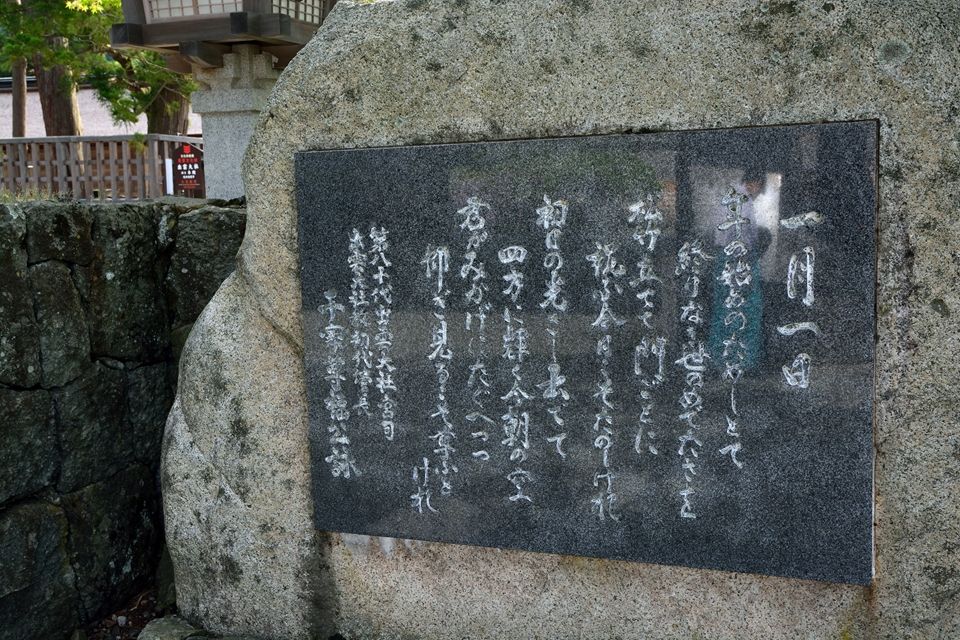 一月一日
年の始めのためしとて
終りなき世のめでたさを
松竹立てて門ごとに
祝ふ今日こそたのしけれ
初日の光さし出でて
四方に輝く今朝の空
君がみかげにたぐへつつ
仰ぎ見るこそ尊とけれ
第八十代出雲大社宮司
出雲大社教初代管長
千家尊福公詠
出雲大社